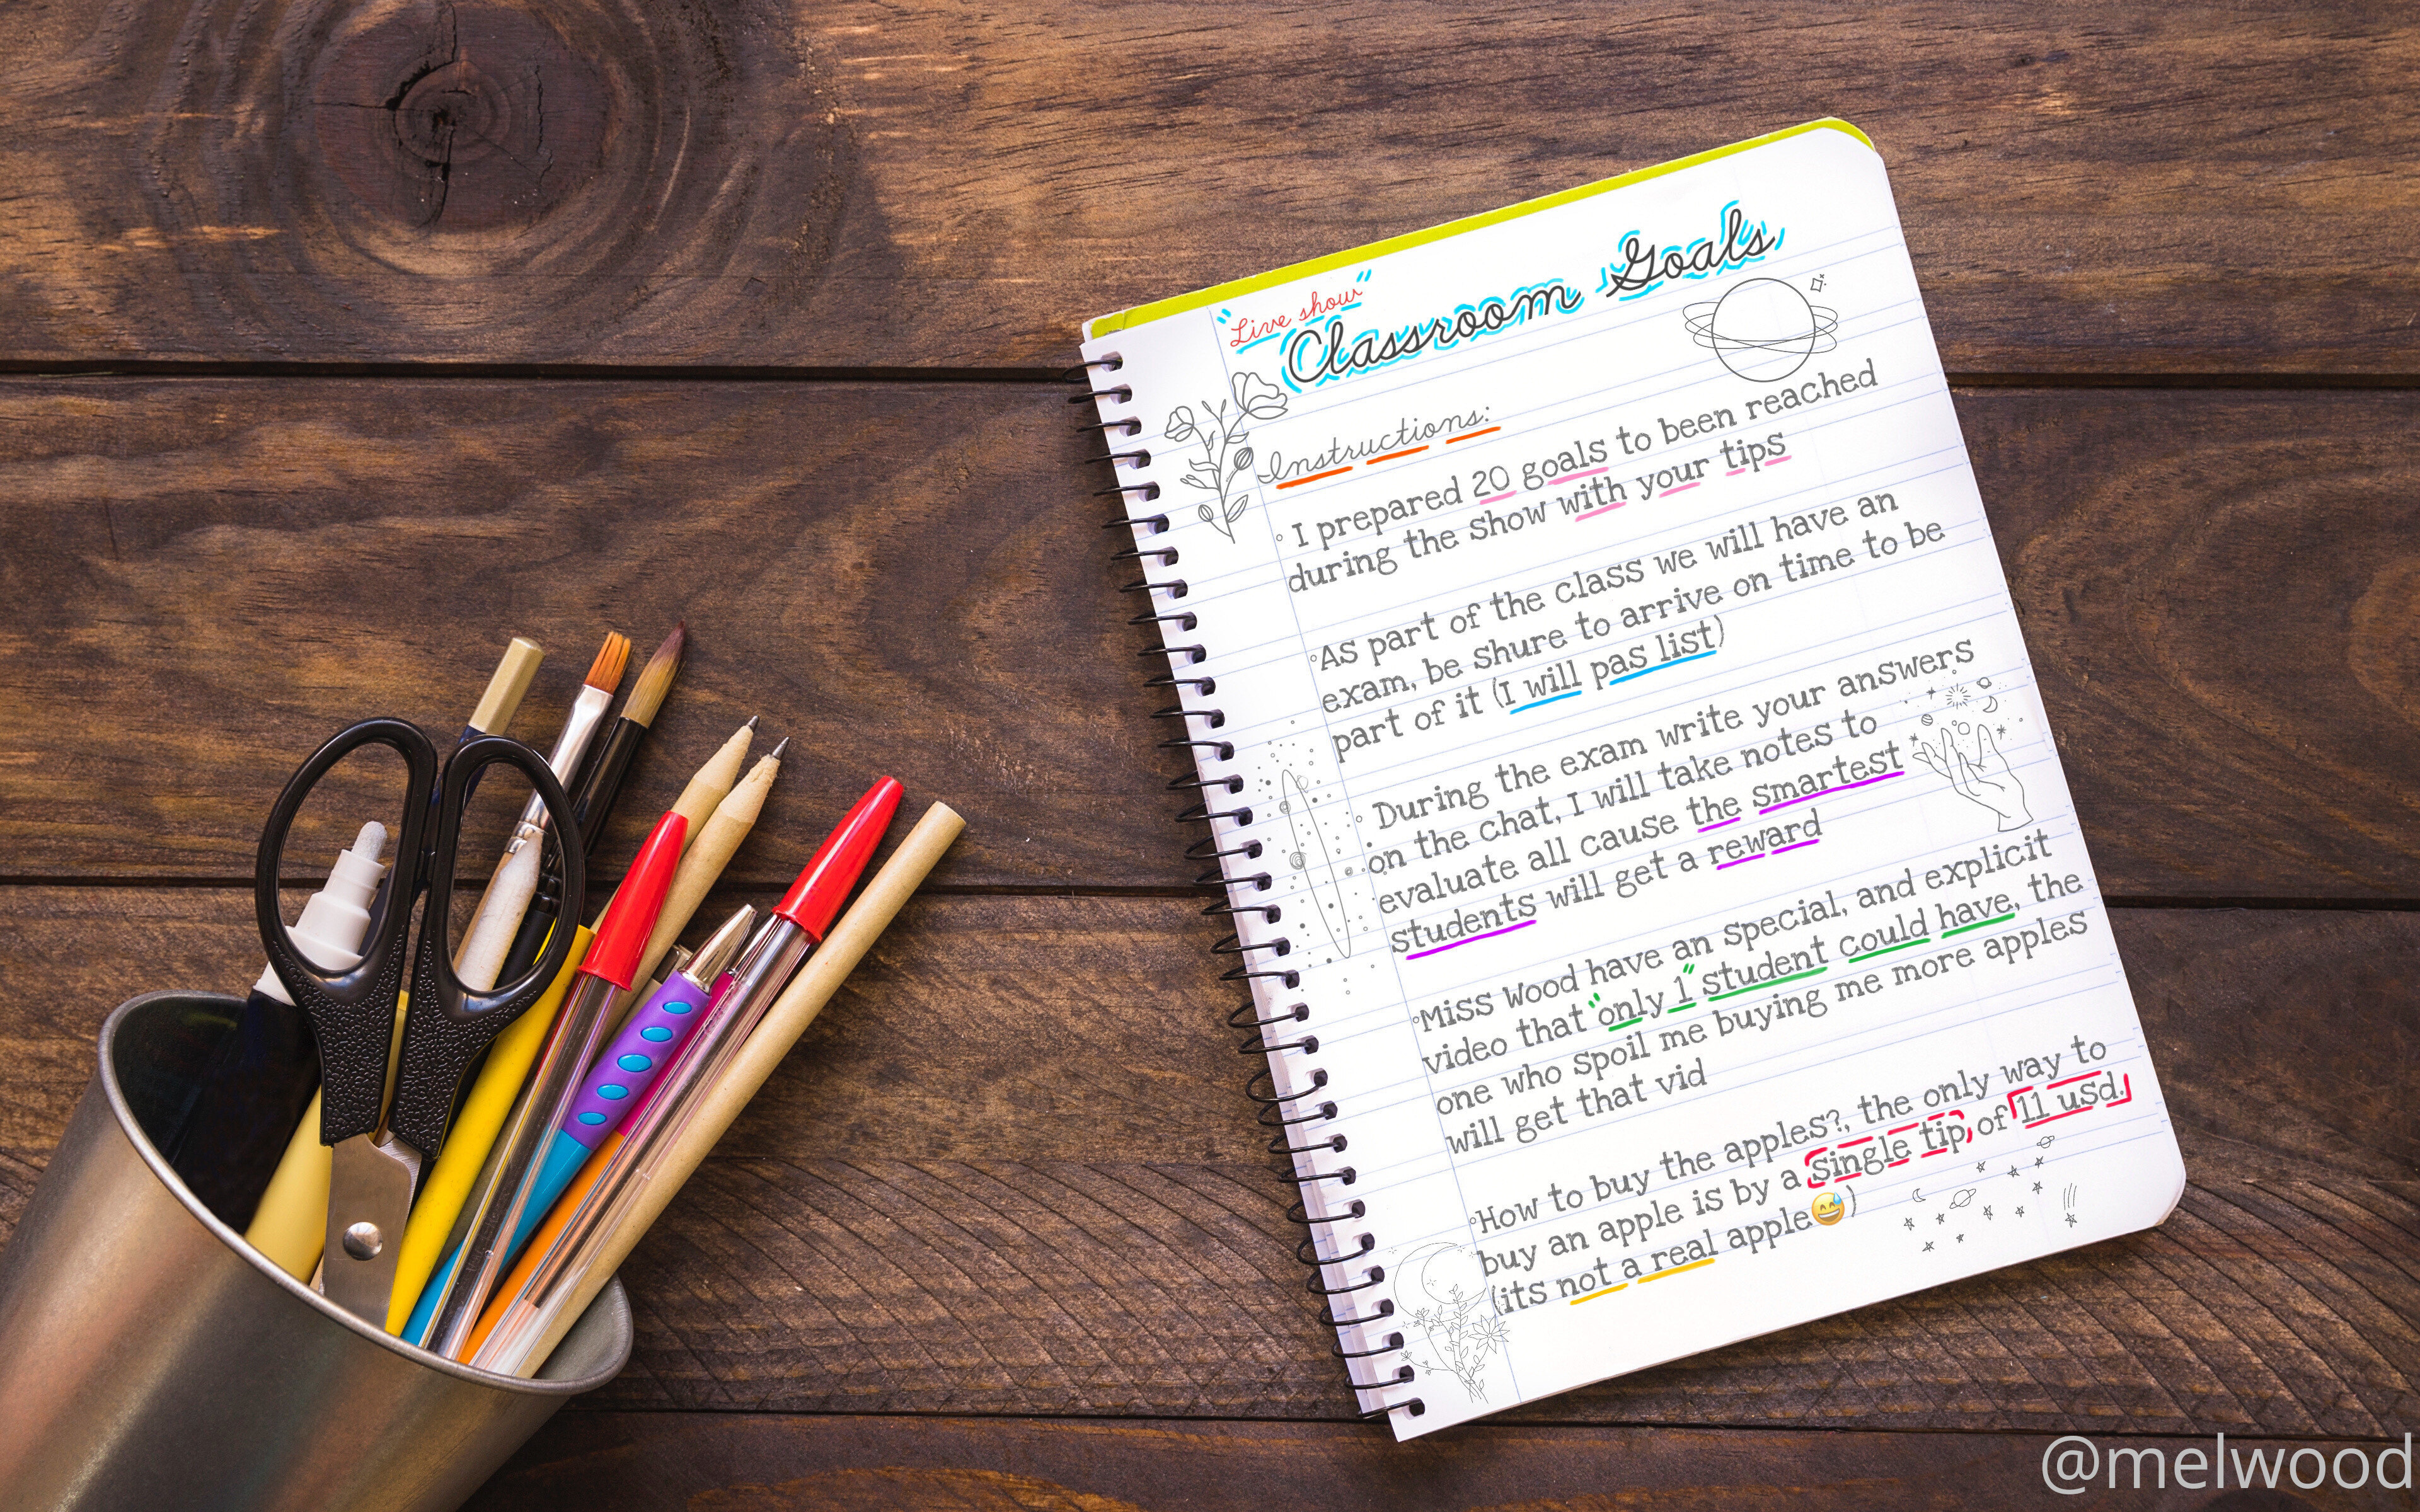 "Live show"
Classroom Goals
Instructions:
° I prepared 20 goals to been reached
during the show with your tips
°As part of the class we will have an
exam, be shure to arrive on time to be
part of it (I will pas list)
° During the exam write your answers
on the chat, I will take notes to
evaluate all cause the smartest
students will get a reward
°Miss Wood have an special, and explicit
video that "only 1" student could have, the
one who spoil me buying me more apples
will get that vid
°How to buy the apples?, the only way to
buy an apple is by a single tip, of 11 usd.
(its not a real apple😅)
@melwood